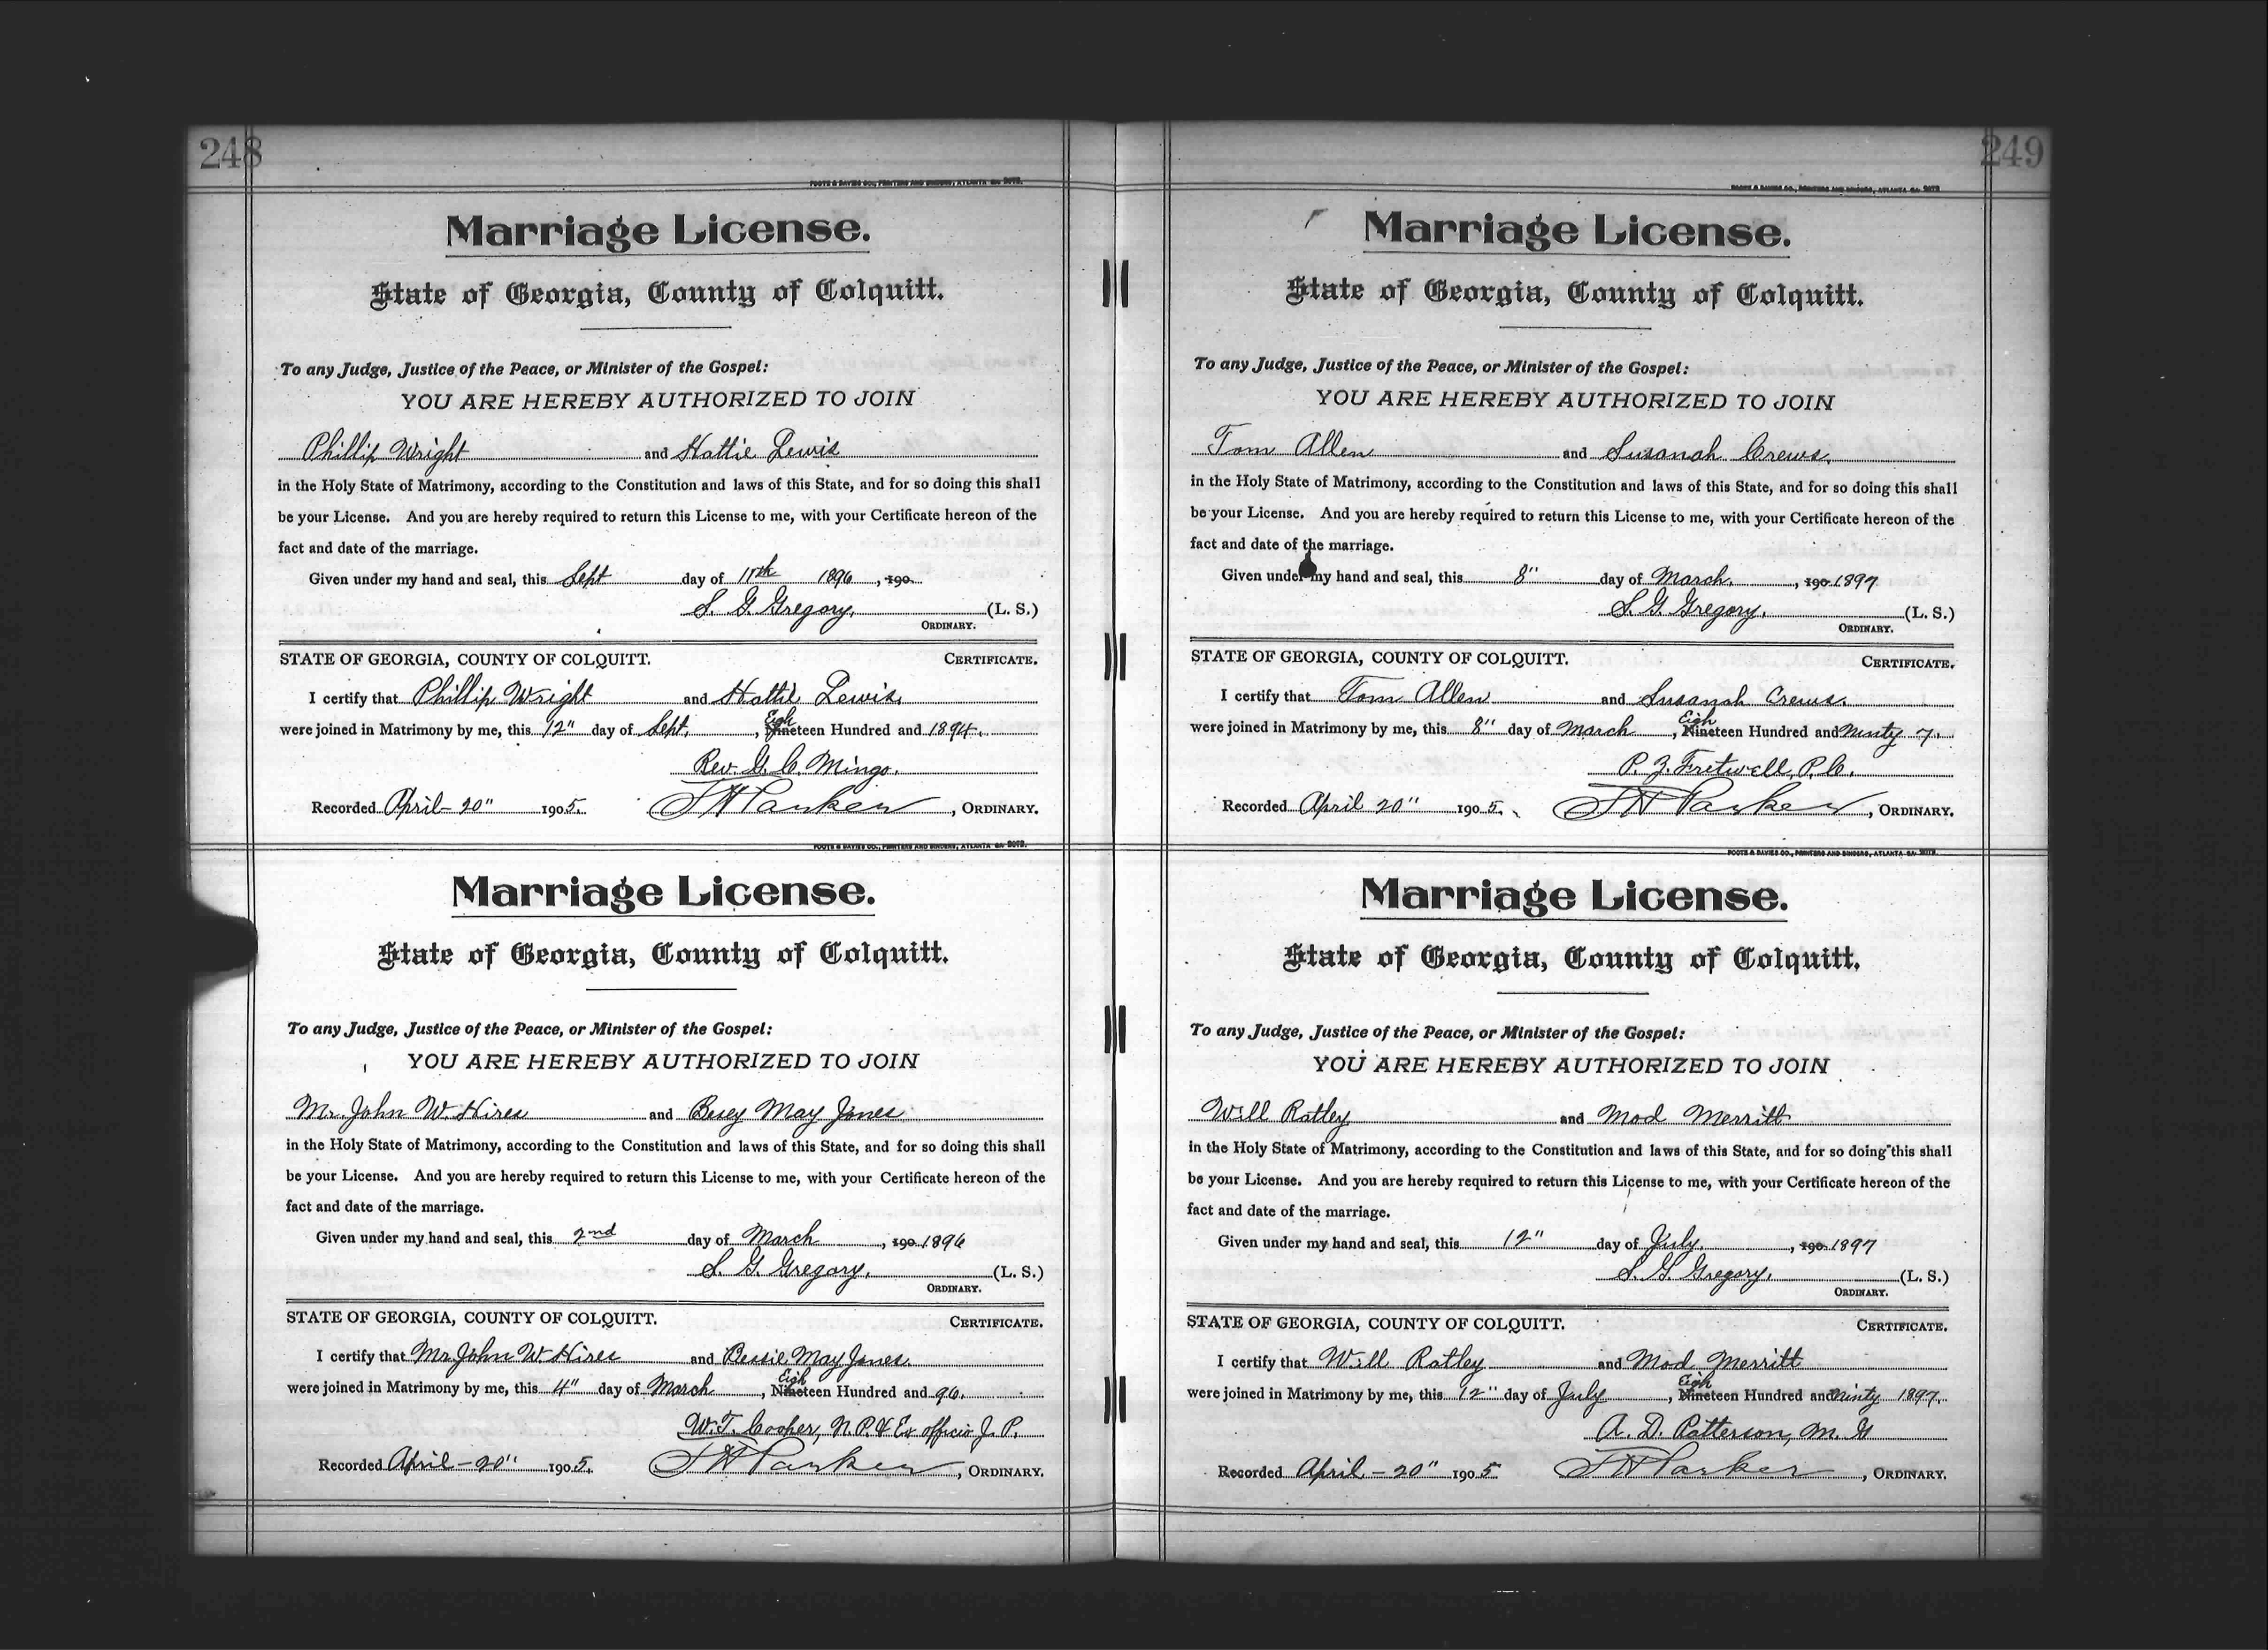 248
FOOTE & DAVIES CO., PRINTERS AND BINDERS, ATLANTA GA.
Marriage License.
State of Georgia, County of Colquitt.
To any Judge, Justice of the Peace, or Minister of the Gospel:
YOU ARE HEREBY AUTHORIZED TO JOIN
Phillip Wright and Hattie Lewis
in the Holy State of Matrimony, according to the Constitution and laws of this State, and for so doing this shall
be your License. And you are hereby required to return this License to me, with your Certificate hereon of the
fact and date of the marriage.
Given under my hand and seal, this Sept day of 1896, 190
S. G. Gregory. (L. S.)
ORDINARY.
STATE OF GEORGIA, COUNTY OF COLQUITT. CERTIFICATE.
I certify that Phillip Wright and Hattie Lewis.
Eigh
were joined in Matrimony by me, this 12" day of Sept. , Nineteen Hundred and
Rev. G. C. Mingo.
Recorded April-20" 1905. J H Parker, ORDINARY.
FOOTE & DAVIES CO., PRINTERS AND BINDERS, ATLANTA GA.
Marriage License.
State of Georgia, County of Colquitt.
To any Judge, Justice of the Peace, or Minister of the Gospel:
YOU ARE HEREBY AUTHORIZED TO JOIN
Mr. John W. Hires and May Jones
in the Holy State of Matrimony, according to the Constitution and laws of this State, and for so doing this shall
be your License. And you are hereby required to return this License to me, with your Certificate hereon of the
fact and date of the marriage.
Given under my hand and seal, this 2nd day of March , 190 1896
S. G. Gregory. (L. S.)
ORDINARY.
STATE OF GEORGIA, COUNTY OF COLQUITT. CERTIFICATE.
I certify that Mr John W. Hires and Bessie May Jones.
Eigh
were joined in Matrimony by me, this 4" day of March , Nineteen Hundred and 96.
W. T. N. P. & Ex officio J. P.
Recorded April-20" 1905. J H Parker, ORDINARY.
249
FOOTE & DAVIES CO., PRINTERS AND BINDERS, ATLANTA GA.
Marriage License.
State of Georgia, County of Colquitt.
To any Judge, Justice of the Peace, or Minister of the Gospel:
YOU ARE HEREBY AUTHORIZED TO JOIN
Tom Allen and Susanah Crews.
in the Holy State of Matrimony, according to the Constitution and laws of this State, and for so doing this shall
be your License. And you are hereby required to return this License to me, with your Certificate hereon of the
fact and date of the marriage.
Given under my hand and seal, this 8" day of March. , 190 1897
S. G Gregory. (L. S.)
ORDINARY.
STATE OF GEORGIA, COUNTY OF COLQUITT. CERTIFICATE.
I certify that Tom Allen and Susanah Crews.
Eigh
were joined in Matrimony by me, this 8" day of March , Nineteen Hundred and Ninty 7.
P. Z. Fretwell, P. C.
Recorded April 20" 1905. J H Parker, ORDINARY.
FOOTE & DAVIES CO., PRINTERS AND BINDERS, ATLANTA GA.
Marriage License.
State of Georgia, County of Colquitt.
To any Judge, Justice of the Peace, or Minister of the Gospel:
YOU ARE HEREBY AUTHORIZED TO JOIN
Will Ratley and Mod Merritt
in the Holy State of Matrimony, according to the Constitution and laws of this State, and for so doing this shall
be your License. And you are hereby required to return this License to me, with your Certificate hereon of the
fact and date of the marriage.
Given under my hand and seal, this 12" day of July. , 190 1897
S. G. Gregory. (L. S.)
ORDINARY.
STATE OF GEORGIA, COUNTY OF COLQUITT. CERTIFICATE.
I certify that Will Ratley and Mod Merritt
Eigh
were joined in Matrimony by me, this 12" day of July , Nineteen Hundred and Ninty 1897.
A. D. Patterson, M. G
Recorded April-20" 1905 J H Parker, ORDINARY.